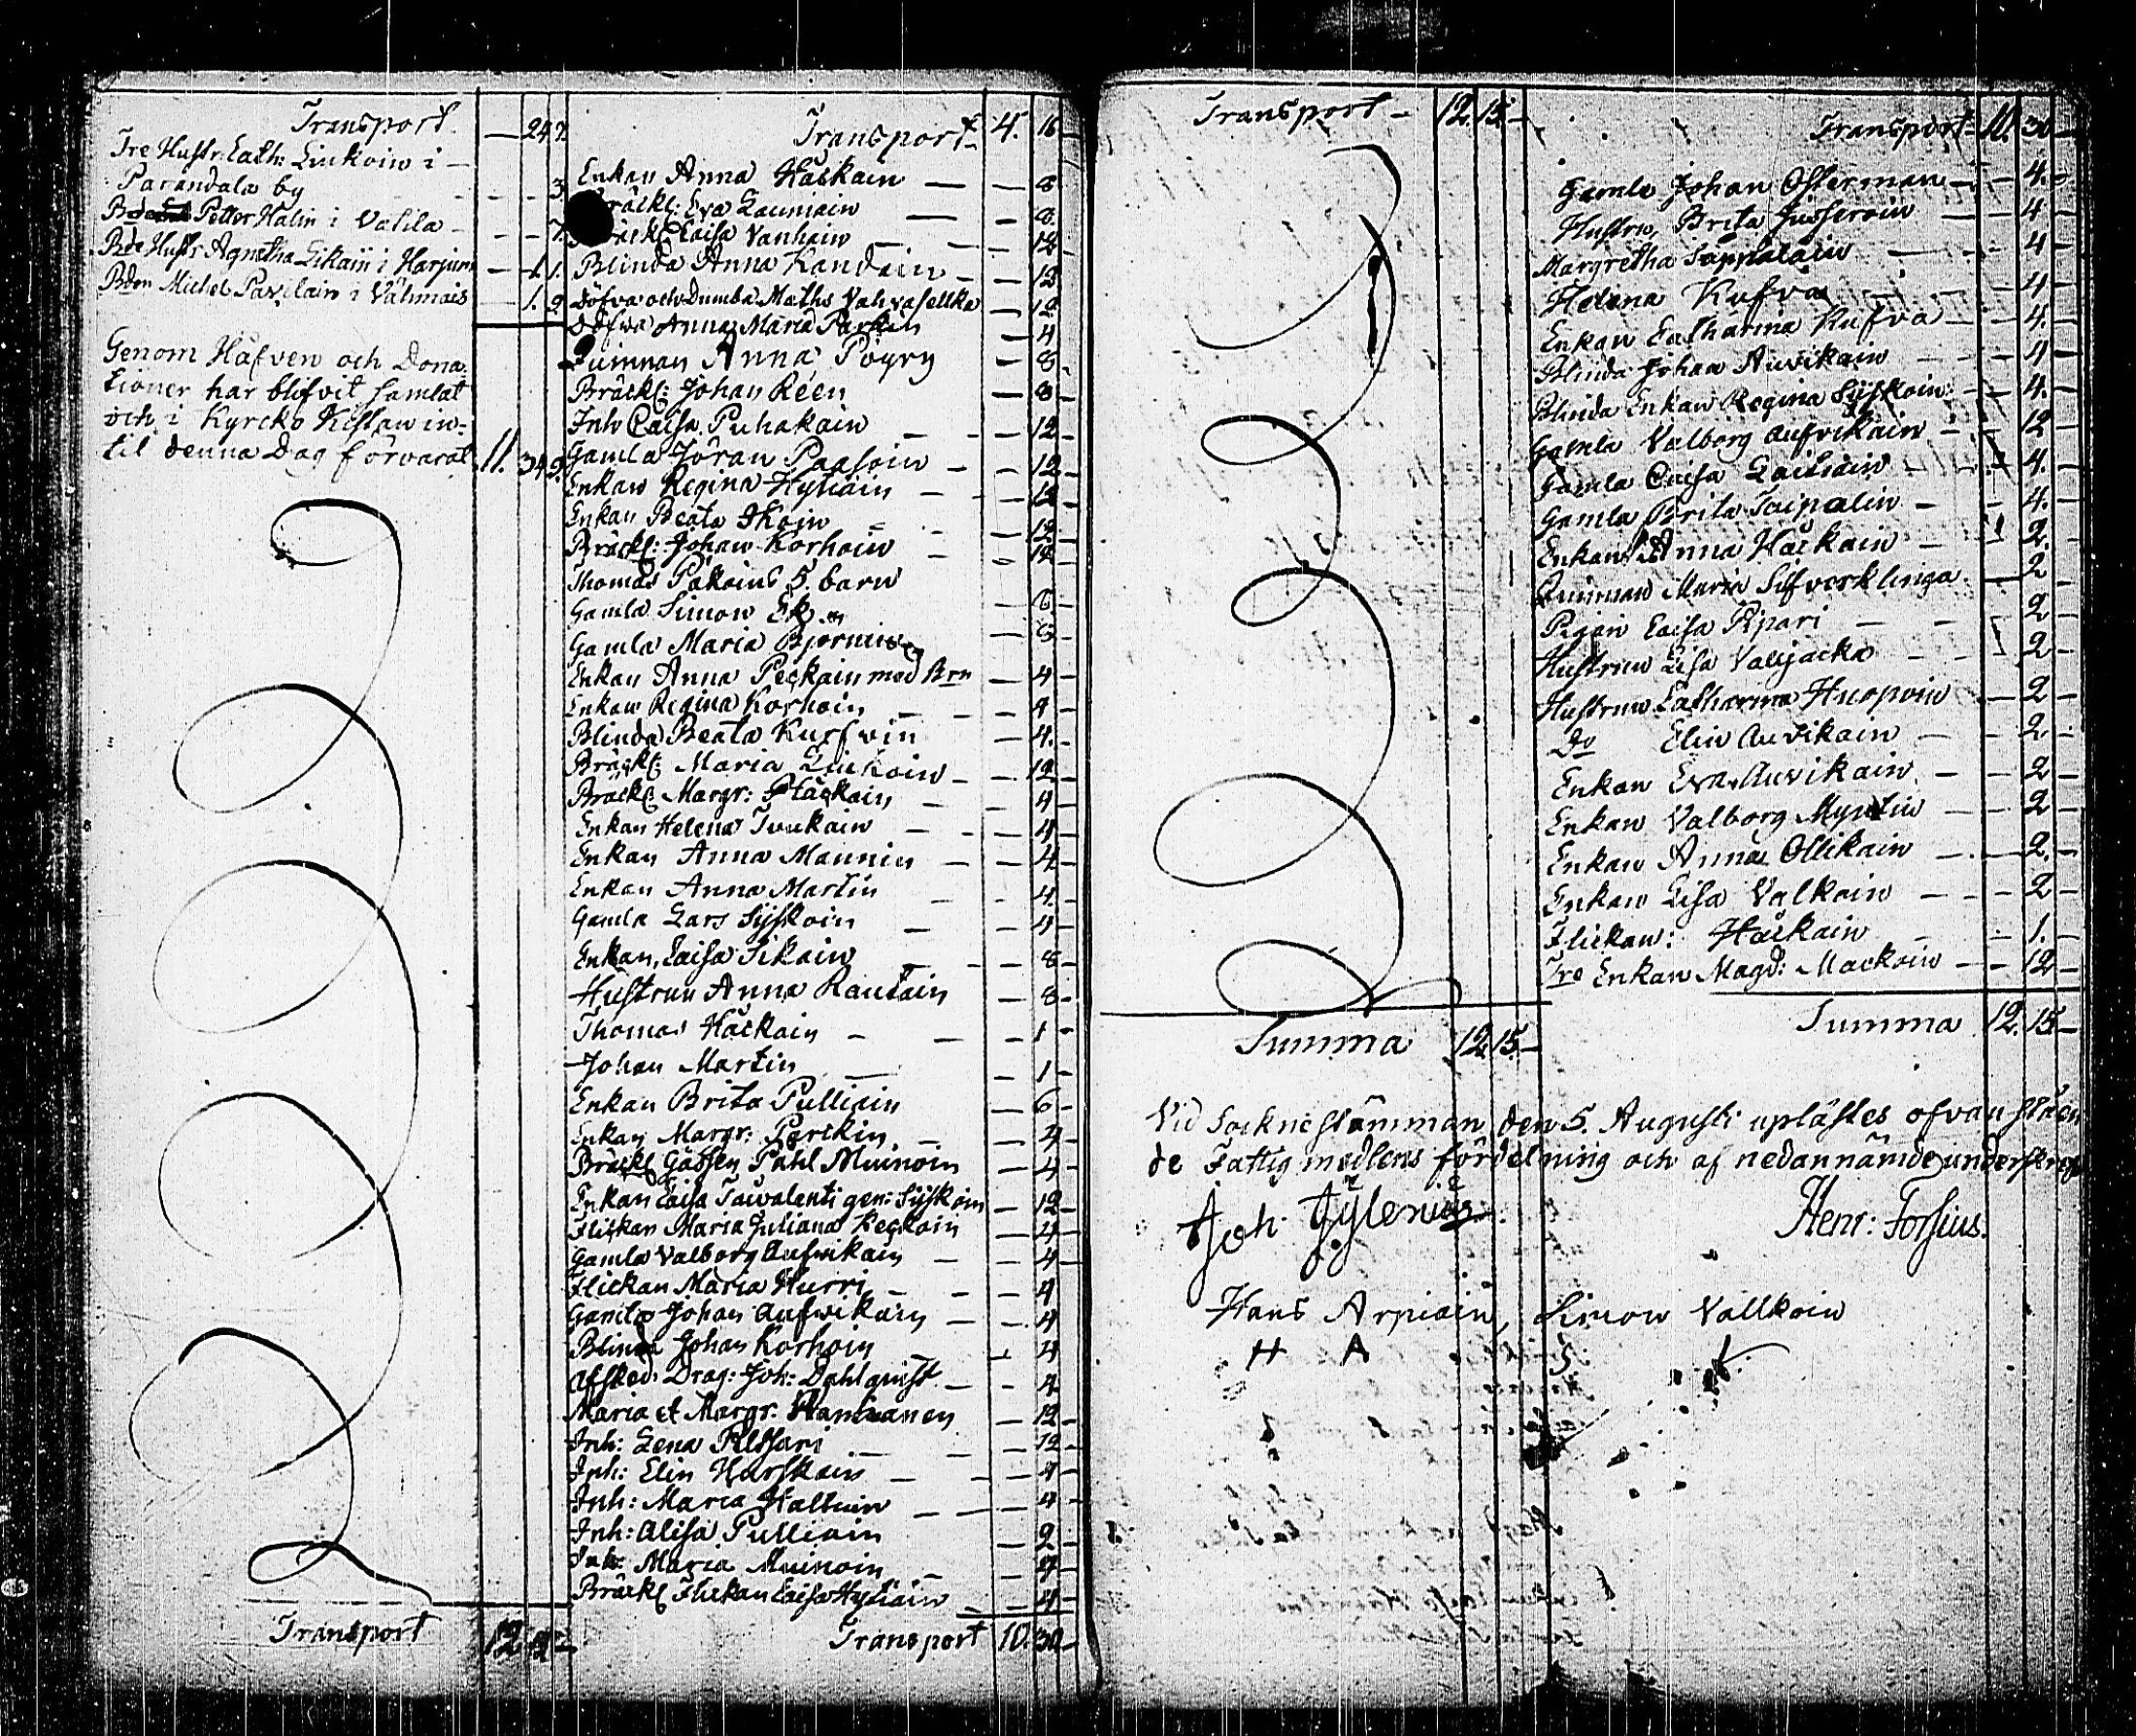 Transport — 24 7.
Tre Hustr. Cath: Liukoin i —
Parandala by - - - 3
Petter Halin i Valila - - - 7.
Bde Hustr Agnetha Likain i Harjum — 1. 1.
Bden Michel Pavilain i Välimais — 1. 9.
Genom Häfven och Dona-
tioner har blifvit samlat
och i Kyrcko Kistan in-
til denna Dag förvarat 11. 34 9.
Transport 12. 15 —
Transport 4. 16 —
Enkan Anna Häckain — — 8
Bräckl: Eva Laumain — — 8
Caisa Vanhain — — 12
Blinda Anna Kandain — — 12
Döfva och Dumba Maths Vahvasellka 12
Döfva Anna Maria Parkin — 4
Quinnan Anna Pöyry — 8
Bräckl: Johan Reen — 8
Inh Caisa Puhakain — — 12
Gamla Jöran Paasoin — — 12
Enkan Regina Hytiäin — — 12
Enkan Beata Ikoin — — 12
Bräckl: Johan Korhoin — — 12
Thomas Pakoins 5. barn
Gamla Simon Ek — 6
Gamla Maria Björnin — 8
Enkan Anna Peckain med Brn — 4
Enkan Regina Korhoin — — 4
Blinda Beata Kurfvin — 4
Bräckl: Maria Liukoin — — 12
Bräckl: Margr: Häckain — — 4
Enkan Helena Tuukain — — 4
Enkan Anna Mannin — — 4
Enkan Anna Martin — — 4
Gamla Lars Sijskoin — — 4
Enkan Caisa Sikain — — 8
Hustrun Anna Rautain — 8
Thomas Häckain — — 1 —
Johan Martin — — 1 —
Enkan Brita Pulliain — 6
Enkan Margr: Perckin — — 4
Bräckl Gåssen Pahl Muinoin — 4
Enkan Caisa Taivalanti gen: Sijskoin — 12
Flickan Maria Juliana Keckoin — 4
Gamla Valborg Aufvikain — — 4
Flickan Maria Hurri — — 4
Gamla Johan Aufvikain — — 4
Blinda Johan Korhoin — 4
Afsked. Drag: Joh: Dahlquist — — 4
Maria et Margr. — 12
Inh: Lena Pelssari — — 12
Inh: Elin Harskain — — 4
Inh: Maria Haltuin — — 4
Inh: Alisa Pulliain — 2
Inh: Maria Muinoin — 4
Bräckl Flickan Caisa Hytiäin — — 4
Transport 10. 30 —
Transport — 12. 15. —
Summa 12. 15. —
Transport — 10. 30 —
Gamla Johan Osterman — — 4. —
Hustru Brita Jusseroin — — 4 —
Margretha Sappalain — — 4
Helena Kufva — — 4 —
Enkan Catharina Kufva — — 4. —
Blinda Johan Auvikain — — 4 —
Blinda Enkan Regina Sijskoin — 4. —
Gamla Valborg Aufvikain — — 12
Gamla Caisa Laitiain — — 4. —
Gamla Brita Taipalin — — 4. —
Enkan Anna Häckain — 2.
Quinnan Maria Silfverklinga — 2
Pigan Caisa Pipari — — 2
Hustrun Lisa Valijacka — — 2
Hustrun Catharina Huopoin — 2 —
Do Elin Auvikain — — 2
Enkan Eva Auvikain — — 2 —
Enkan Valborg Myntin — — 2 —
Enkan Anna Ollikain — — 2. —
Enkan Lisa Valkoin — — 2 —
Flickan: Häckain — 1. —
Tre Enkan Magd: Mackoin — — 12 —
Summa 12. 15 —
Vid Sockne stämman den 5. Augusti uplästes ofvan ståen
de Fattig medlens fördelning och af nedannämde underskref
Joh. Gylenius. Henr: Forsius.
Hans Arpiain, Simon Vallkoin
H A S. V.